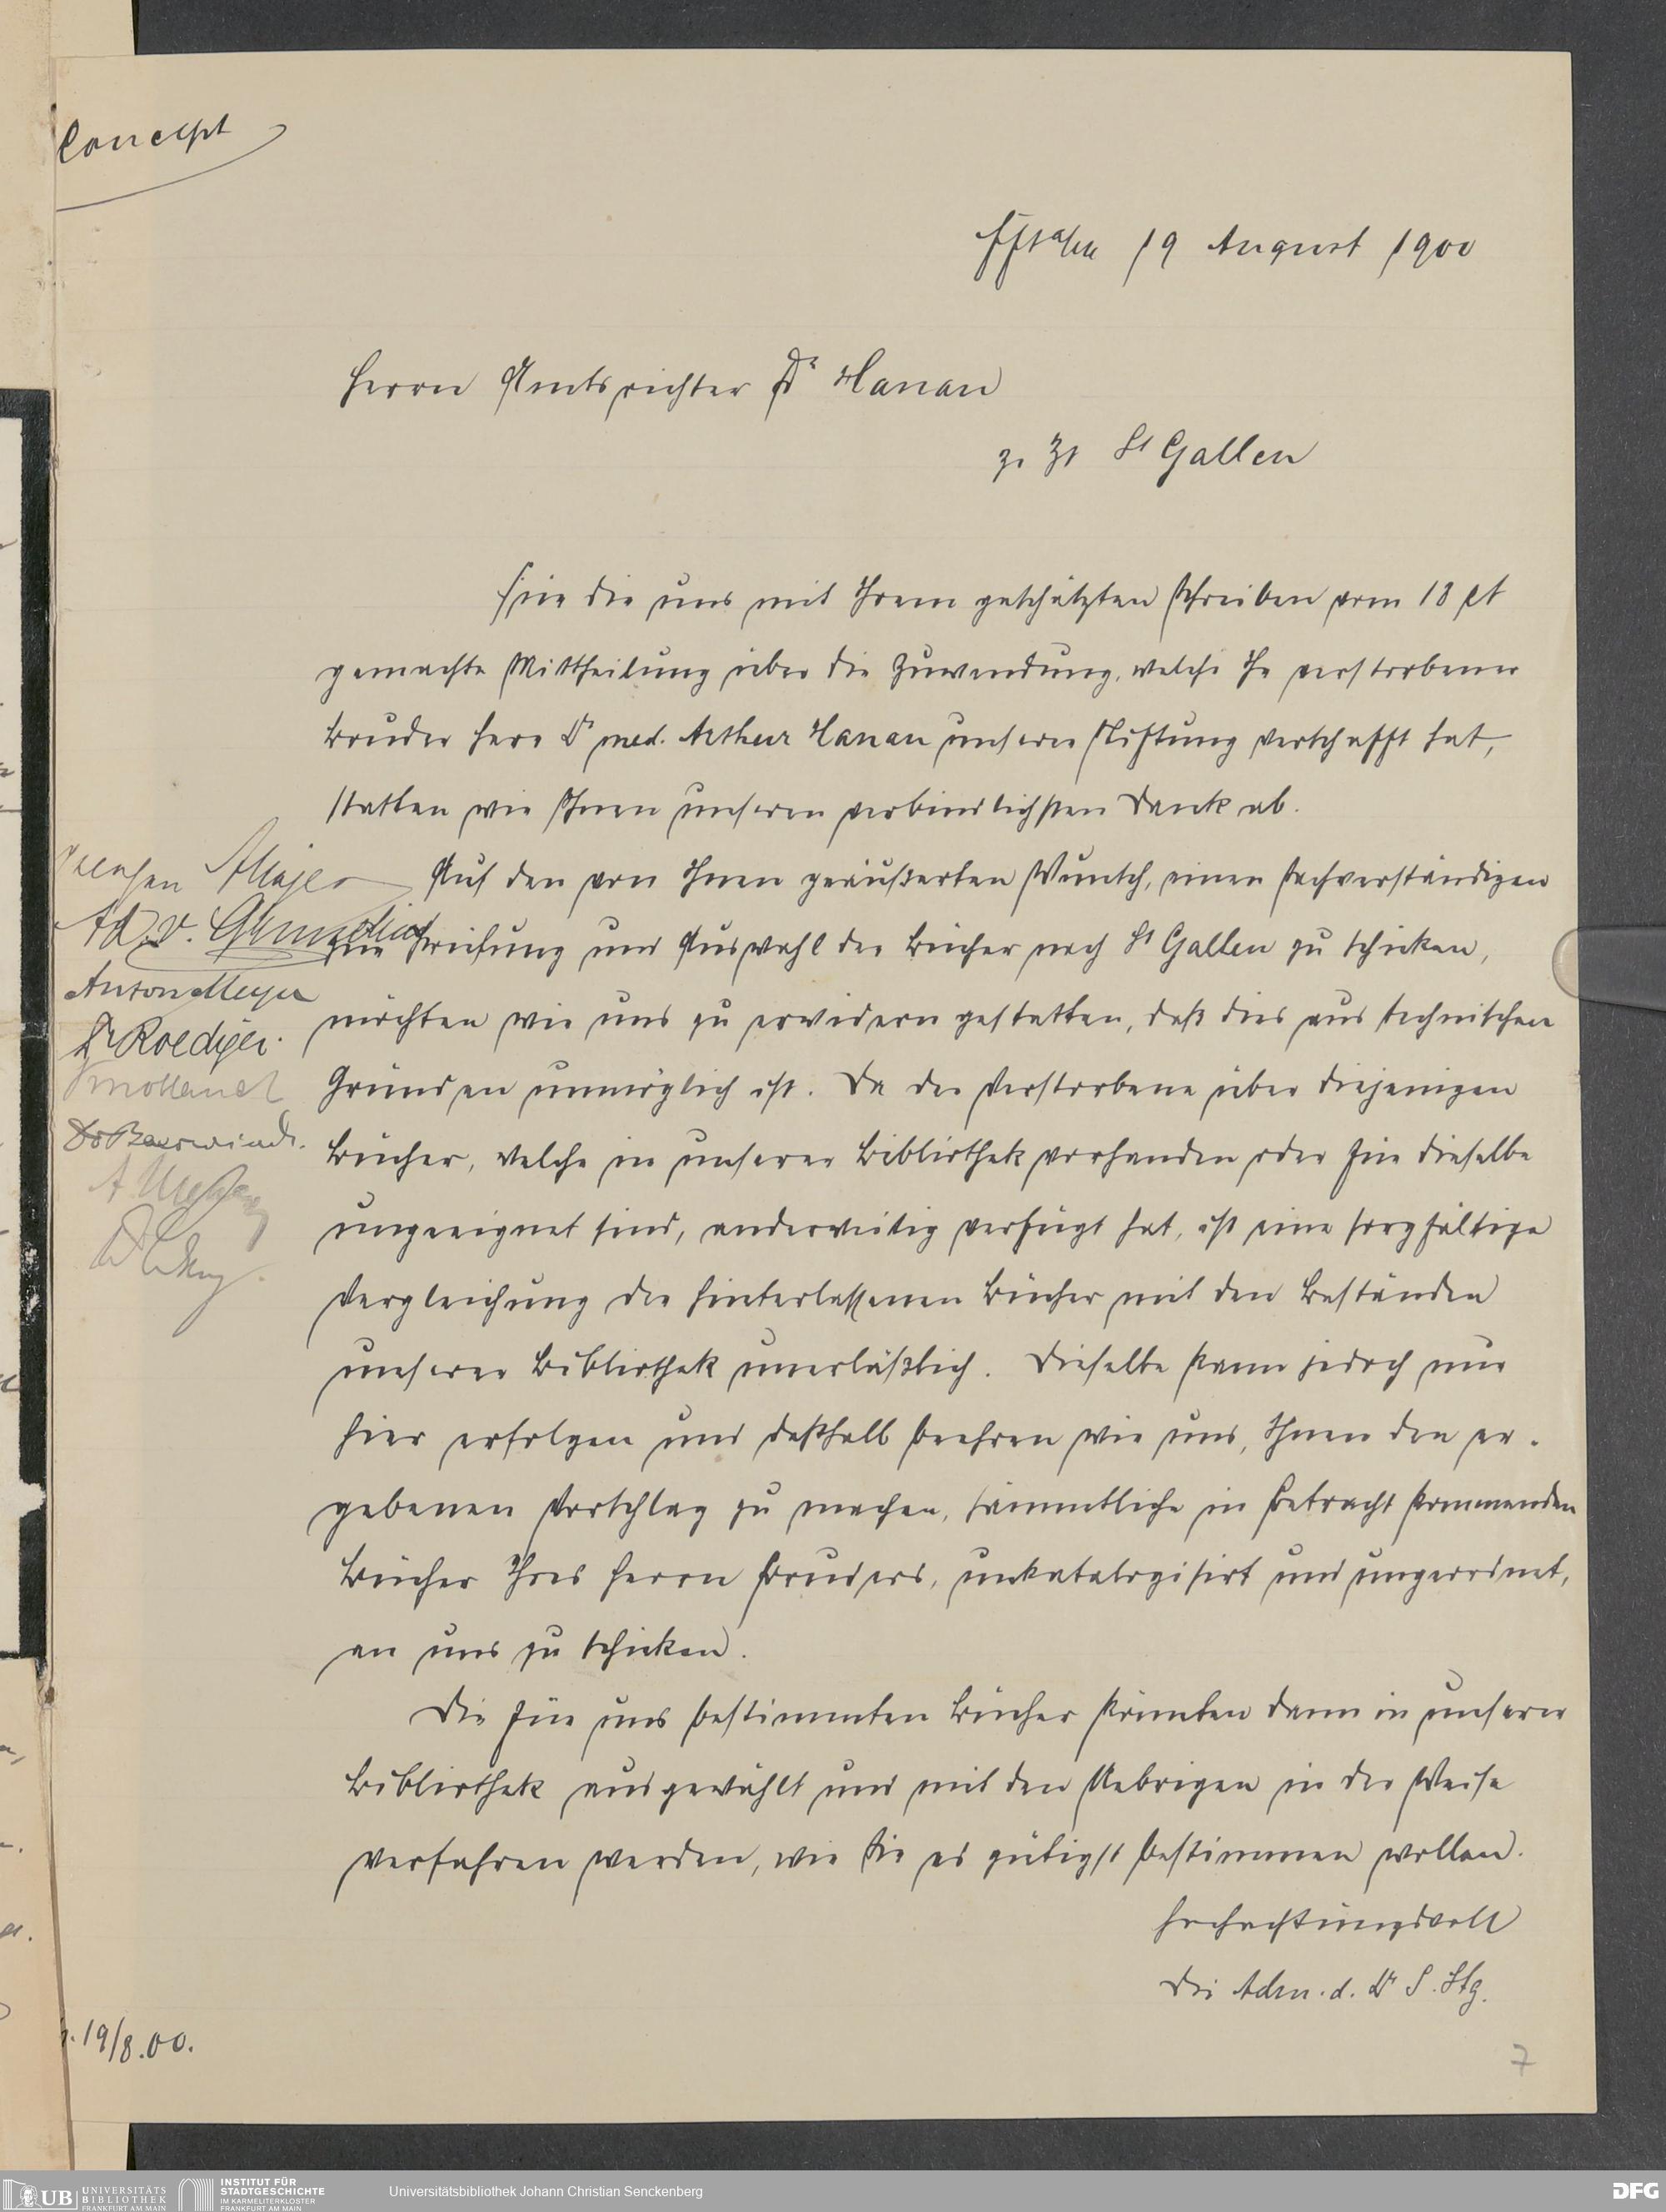 Concept
Fft a/m 19 August 1900
Herrn Amtsrichter Dr Hanau
z. Zt St Gallen
Für die uns mit Ihrem geschätzten Schreiben vom 18 ct
gemachte Mittheilung über die Zuwendung, welche Ihr verstorbener
Bruder Herr Dr med. Arthur Hanau unserer Stiftung verschafft hat,
statten wir Ihnen unseren verbindlichsten Dank ab.
Auf den von Ihnen geäußerten Wunsch, einen Sachverständigen
zur Prüfung und Auswahl der Bücher nach St Gallen zu schicken,
möchten wir uns zu erwidern gestatten, daß dies aus technischen
Gründen unmöglich ist. Da der Verstorbene über diejenigen
Bücher, welche in unserer Bibliothek vorhanden oder für dieselbe
ungeeignet sind, anderweitig verfügt hat, ist eine sorgfältige
Vergleichung der hinterlassenen Bücher mit den Beständen
unserer Bibliothek unerläßlich. Dieselbe kann jedoch nur
hier erfolgen und deßhalb beehren wir uns, Ihnen den er-
gebenen Vorschlag zu machen, sämmtliche in Betracht kommenden
Bücher Ihres Herrn Bruders, unkatalogisirt und ungeordnet,
an uns zu schicken.
Die für uns bestimmten Bücher könnten dann in unserer
Bibliothek ausgewählt und mit den Uebrigen in der Weise
verfahren werden, wie Sie es gütigst bestimmen wollen.
Hochachtungsvoll
Die Adm. d. Dr S. Stg.
Anton Meyer
Dr Roediger.
19/8.00.
7
UB UNIVERSITÄTS
BIBLIOTHEK
FRANKFURT AM MAIN
INSTITUT FÜR
STADTGESCHICHTE
IM KARMELITERKLOSTER
FRANKFURT AM MAIN
Universitätsbibliothek Johann Christian Senckenberg
DFG